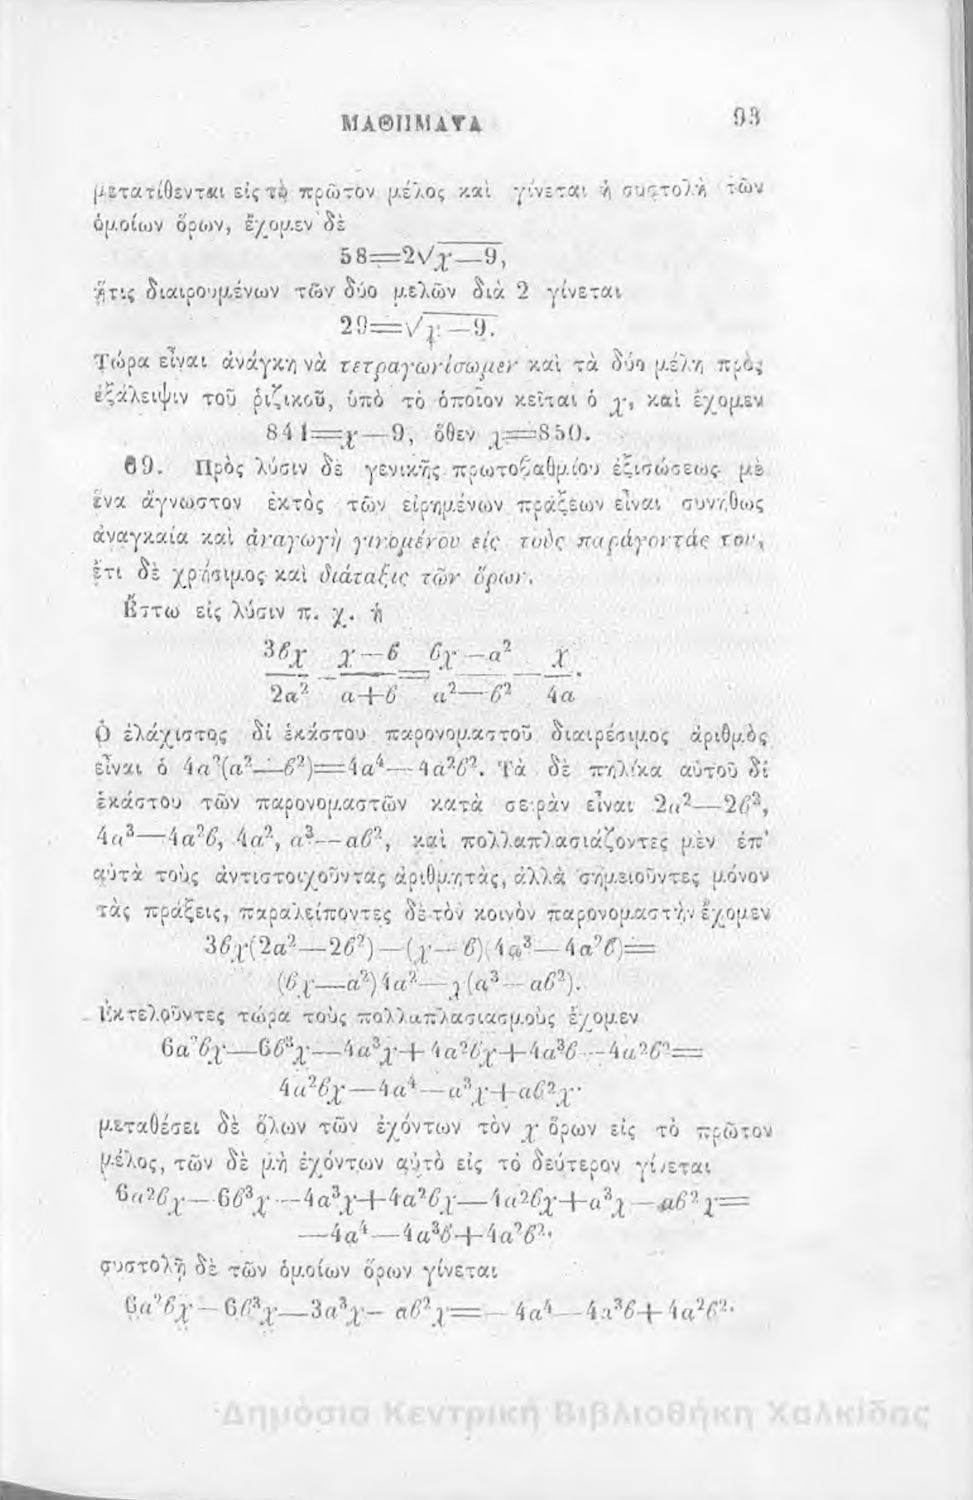 ΜΑΘΗΜΑΤΑ 93
μετατίθενται εἰς τὸ πρῶτον μέλος καὶ γίνεται ἡ συστολὴ τῶν
ὁμοίων ὅρων, ἔχομεν δὲ
58=2√χ—9,
ἥτις διαιρουμένων τῶν δύο μελῶν διὰ 2 γίνεται
29=√χ—9.
Τώρα εἶναι ἀνάγκη νὰ τετραγωνίσωμεν καὶ τὰ δύο μέλη πρὸς
ἐξάλειψιν τοῦ ῥιζικοῦ, ὑπὸ τὸ ὁποῖον κεῖται ὁ χ, καὶ ἔχομεν
841=χ—9, ὅθεν χ=850.
69. Πρὸς λύσιν δὲ γενικῆς πρωτοβαθμίου ἐξισώσεως μὲ
ἕνα ἄγνωστον ἐκτὸς τῶν εἰρημένων πράξεων εἶναι συνήθως
ἀναγκαία καὶ ἀναγωγὴ γινομένου εἰς τοὺς παράγοντάς του,
ἔτι δὲ χρήσιμος καὶ διάταξις τῶν ὅρων.
Ἔστω εἰς λύσιν π. χ. ἡ
3βχ χ—β βχ—α² χ
— — — = — — — .
2α² α+β α²—β² 4α
Ὁ ἐλάχιστος δι' ἑκάστου παρονομαστοῦ διαιρέσιμος ἀριθμὸς
εἶναι ὁ 4α²(α²—β²)=4α⁴—4α²β². Τὰ δὲ πηλίκα αὐτοῦ δι'
ἑκάστου τῶν παρονομαστῶν κατὰ σειρὰν εἶναι 2α²—2β²,
4α³—4α²β, 4α², α³—αβ², καὶ πολλαπλασιάζοντες μὲν ἐπ'
αὐτὰ τοὺς ἀντιστοιχοῦντας ἀριθμητὰς, ἀλλὰ σημειοῦντες μόνον
τὰς πράξεις, παραλείποντες δὲ τὸν κοινὸν παρονομαστὴν ἔχομεν
3βχ(2α²—2β²)—(χ—β)(4α³—4α²β)=
(βχ—α²)4α²—χ(α³—αβ²).
Ἐκτελοῦντες τώρα τοὺς πολλαπλασιασμοὺς ἔχομεν
6α²βχ—6β³χ—4α³χ+4α²βχ+4α³β—4α²β²=
4α²βχ—4α⁴—α³χ+αβ²χ·
μεταθέσει δὲ ὅλων τῶν ἐχόντων τὸν χ ὅρων εἰς τὸ πρῶτον
μέλος, τῶν δὲ μὴ ἐχόντων αὐτὸ εἰς τὸ δεύτερον γίνεται
6α²βχ—6β³χ—4α³χ+4α²βχ—4α²βχ+α³χ—αβ²χ=
—4α⁴—4α³β+4α²β²·
συστολῇ δὲ τῶν ὁμοίων ὅρων γίνεται
6α²βχ—6β³χ—3α³χ—αβ²χ=—4α⁴—4α³β+4α²β²·
Δημόσια Κεντρική Βιβλιοθήκη Χαλκίδας